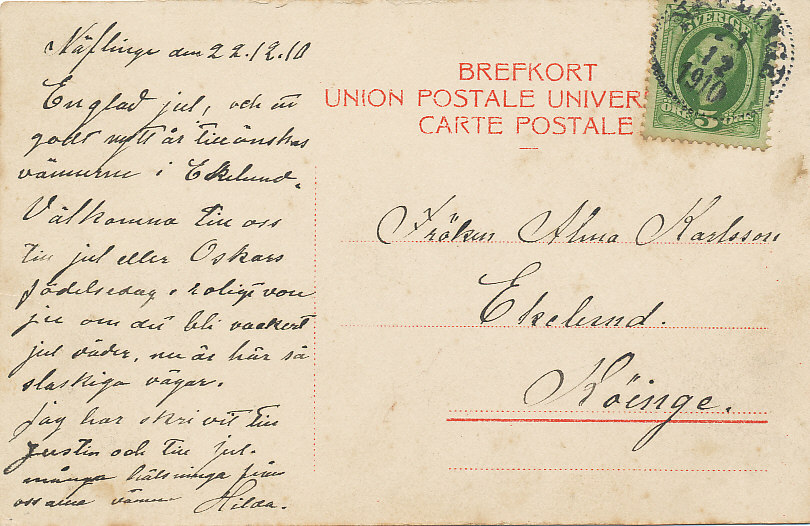 Näflinge den 22.12.10
En glad jul, och ett
godt nytt år tillönskas
vännerne i Ekelund.
Välkomna till oss
till jul eller Oskars
födelsedag, roligt vore
ju om det bli vackert
jul väder, nu är här så
slaskiga vägar.
Jag har skrivit till
och till jul.
många hälsninga från
oss alla vänner Hilda.
BREFKORT
UNION POSTALE UNIVER
CARTE POSTALE
SVERIGE
12
1910
5
Fröken Alma Karlsson
Ekelund.
Köinge.